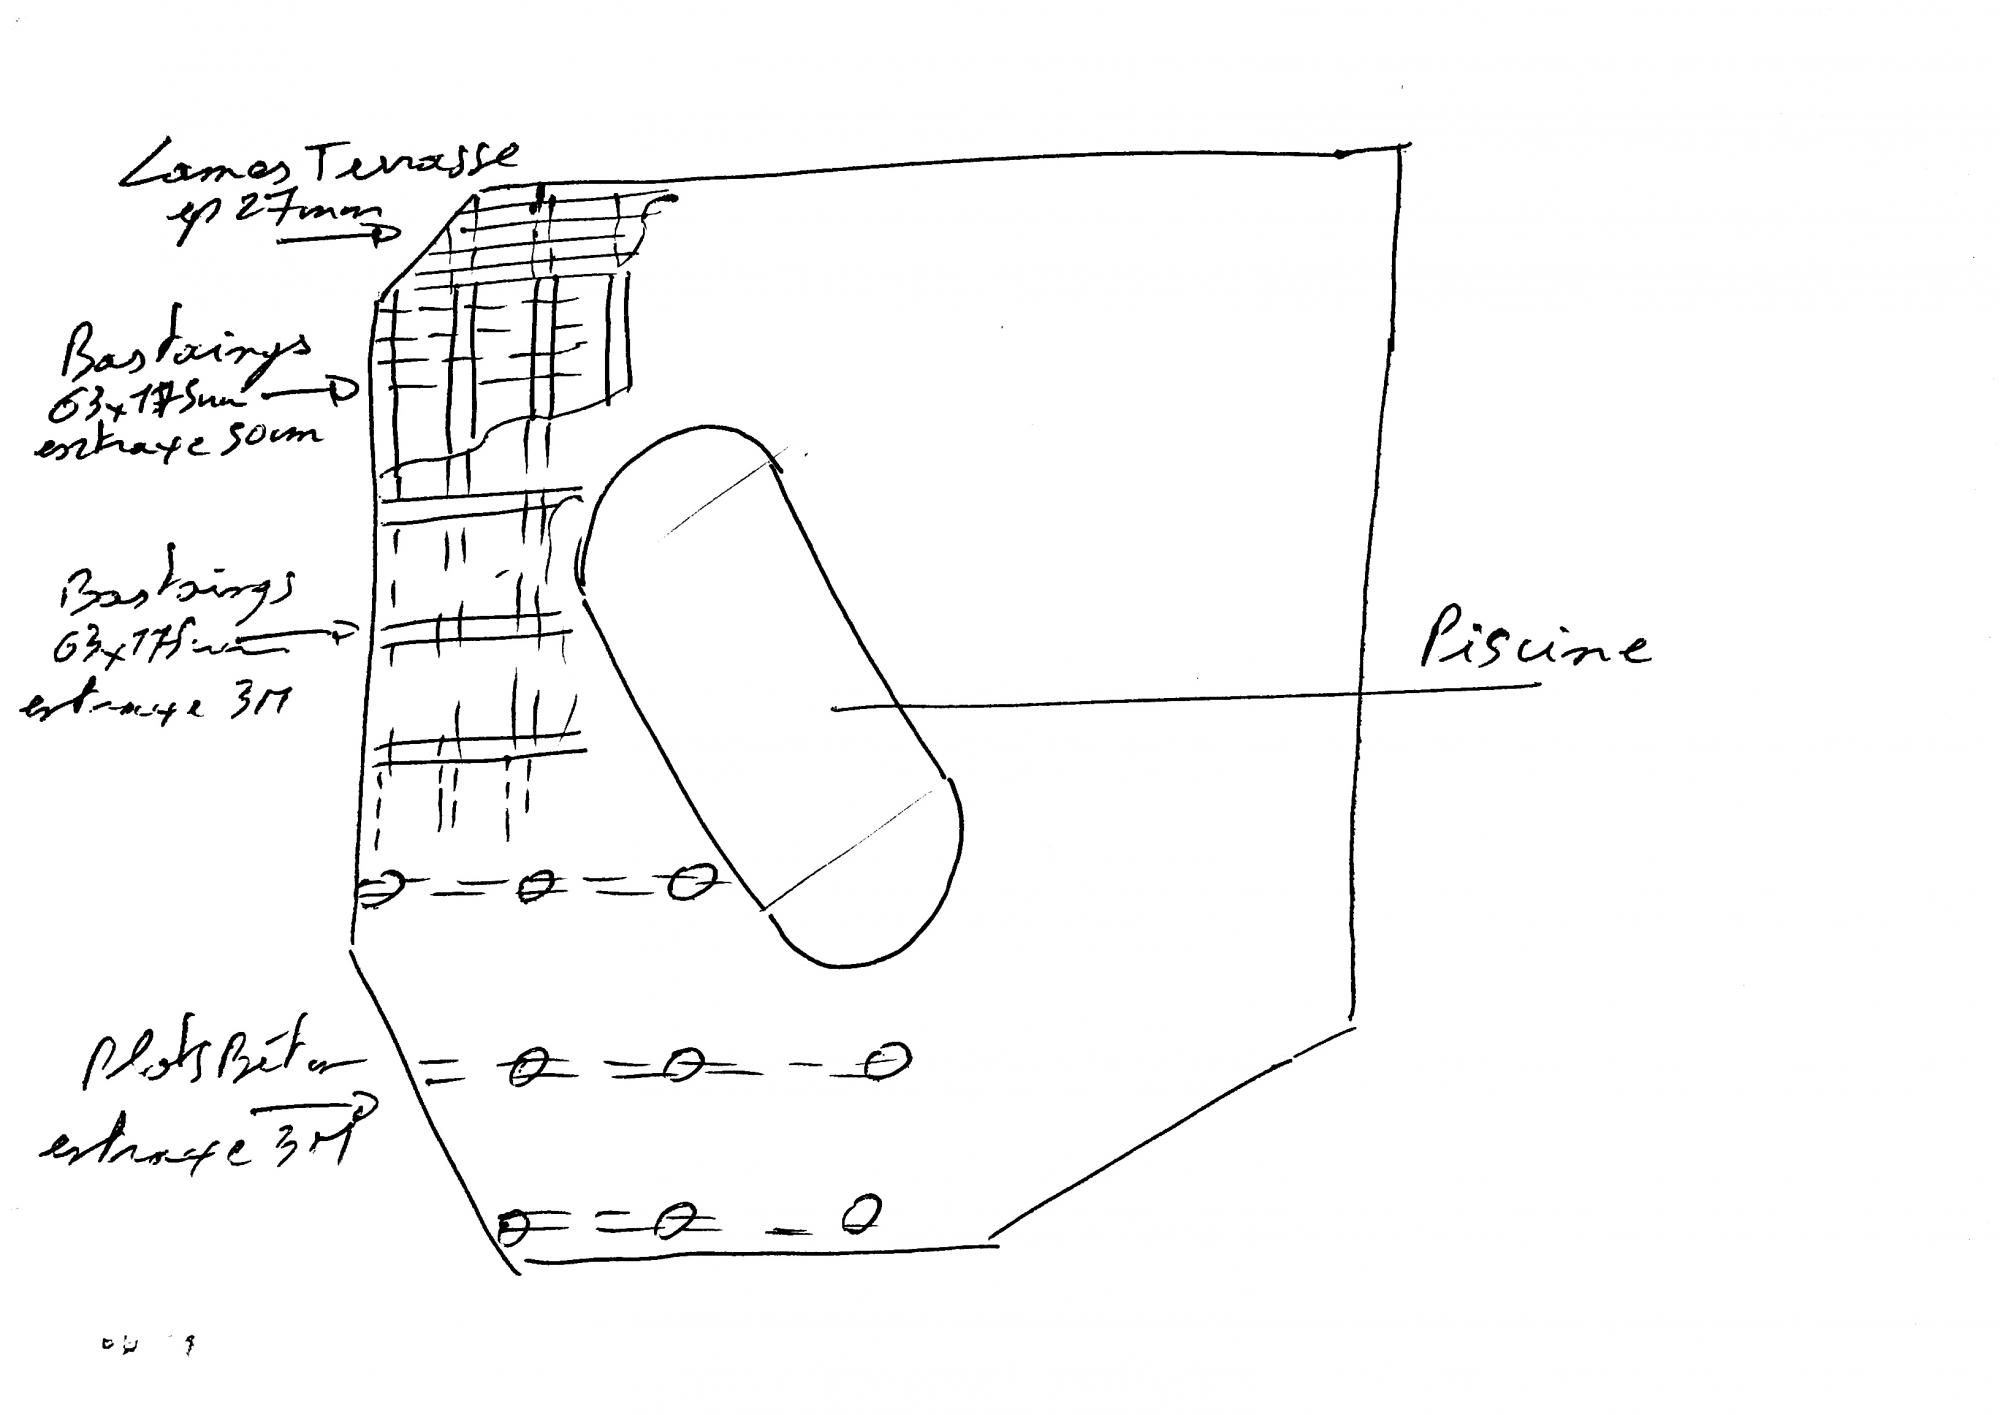 Lames Terrasse
ep 27mm
Bastaings
63x175mm
entraxe 50cm
Bastaings
63x175mm
entraxe 3M
Piscine
Plots Béton
entraxe 3M